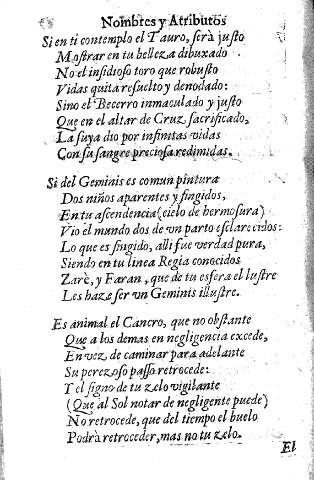 Nombres y Atributos
Si en ti contemplo el Tauro, serà justo
Mostrar en tu belleza dibuxado
No el insidioso toro que robusto
Vidas quita resuelto y denodado:
Sino el Becerro inmaculado y justo
Que en el altar de Cruz sacrificado,
La suya dio por infinitas vidas
Con su sangre preciosa redimidas.
Si del Geminis es comun pintura
Dos niños aparentes y fingidos,
En tu ascendencia (cielo de hermosura)
Vio el mundo dos de un parto esclarecidos:
Lo que es fingido, alli fue verdad pura,
Siendo en tu linea Regia conocidos
Zarè, y Faran, que de tu esfera el lustre
Les haze ser un Geminis illustre.
Es animal el Cancro, que no obstante
Que a los demas en negligencia excede,
En vez de caminar para adelante
Su perezoso passo retrocede:
Y el signo de tu zelo vigilante
(Que al Sol notar de negligente puede)
No retrocede, que del tiempo el buelo
Podrà retroceder, mas no tu zelo.
El